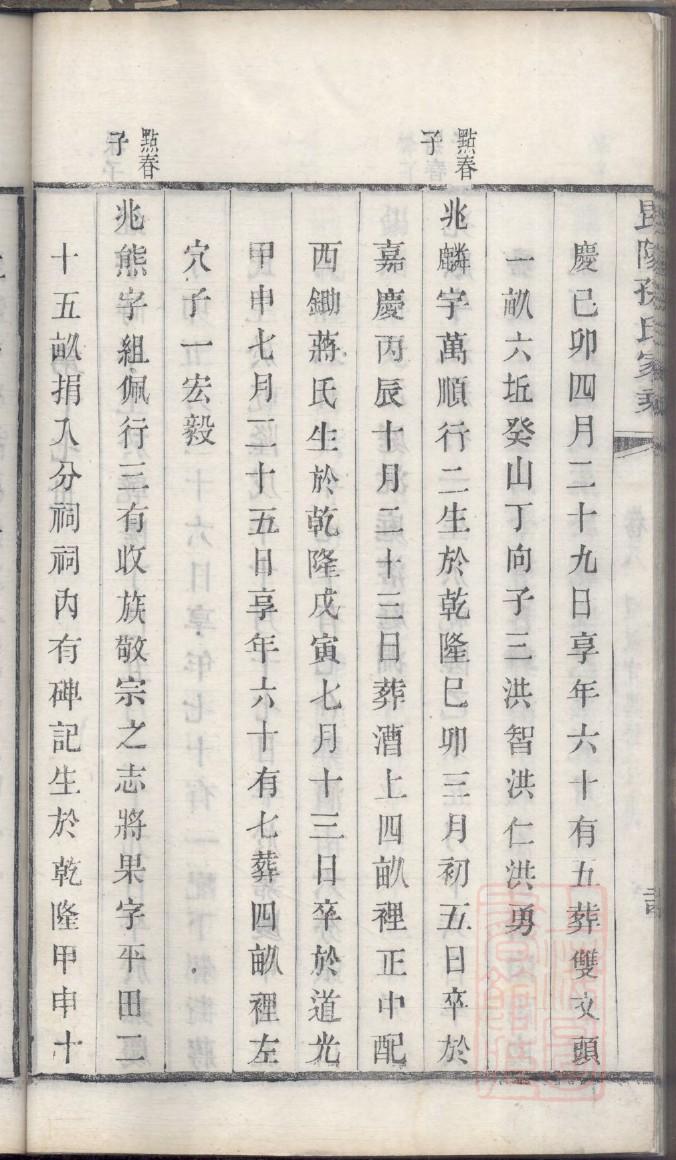 毘陵孫氏家乘
慶己卯四月二十九日享年六十有五葬雙文頭
一畝六坵癸山丁向子三洪智洪仁洪勇
點春子
兆麟字萬順行二生於乾隆己卯三月初五日卒於
嘉慶丙辰十月二十三日葬漕上四畝裡正中配
西鋤蔣氏生於乾隆戊寅七月十三日卒於道光
甲申七月二十五日享年六十有七葬四畝裡左
穴子一宏毅
點春子
兆熊字組佩行三有收族敬宗之志將果字平田二
十五畝捐入分祠祠內有碑記生於乾隆甲申十